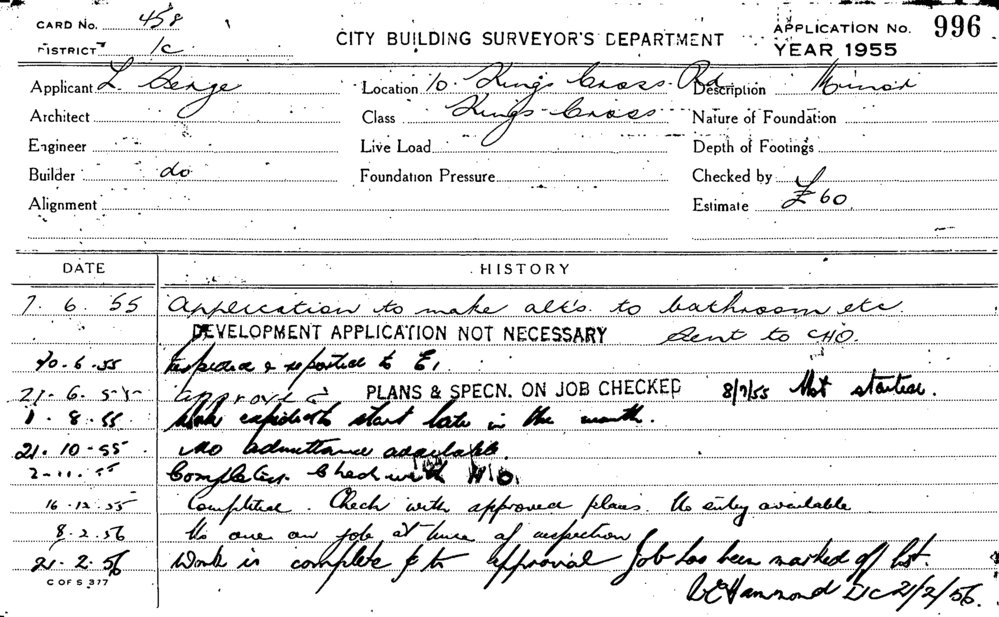 CARD No. 458
DISTRICT 1c
CITY BUILDING SURVEYOR'S DEPARTMENT
APPLICATION No. 996
YEAR 1955
Applicant L. Location 10. Kings Cross Rd Description Minor
Architect Class Kings Cross Nature of Foundation
Engineer Live Load Depth of Footings
Builder do Foundation Pressure Checked by
Alignment Estimate £60
DATE HISTORY
7. 6. 55 Application to make alt's. to bathroom etc.
DEVELOPMENT APPLICATION NOT NECESSARY Sent to CHO.
20.6.55 Inspected & reported to E,
21. 6. 55 approved PLANS & SPECN. ON JOB CHECKED 8/7/55 Not started.
1. 8. 55 Work start late in the month.
21. 10 - 55 No admittance available.
2-11. 55 Check with H.O.
16. 12. 55 Completed. Check with approved plans. No entry available
8. 2. 56 No one on job at time of inspection
21. 2. 56 Work is complete & to approval Job has been marked off list.
C OF S 377
Hammond 21/2/56.